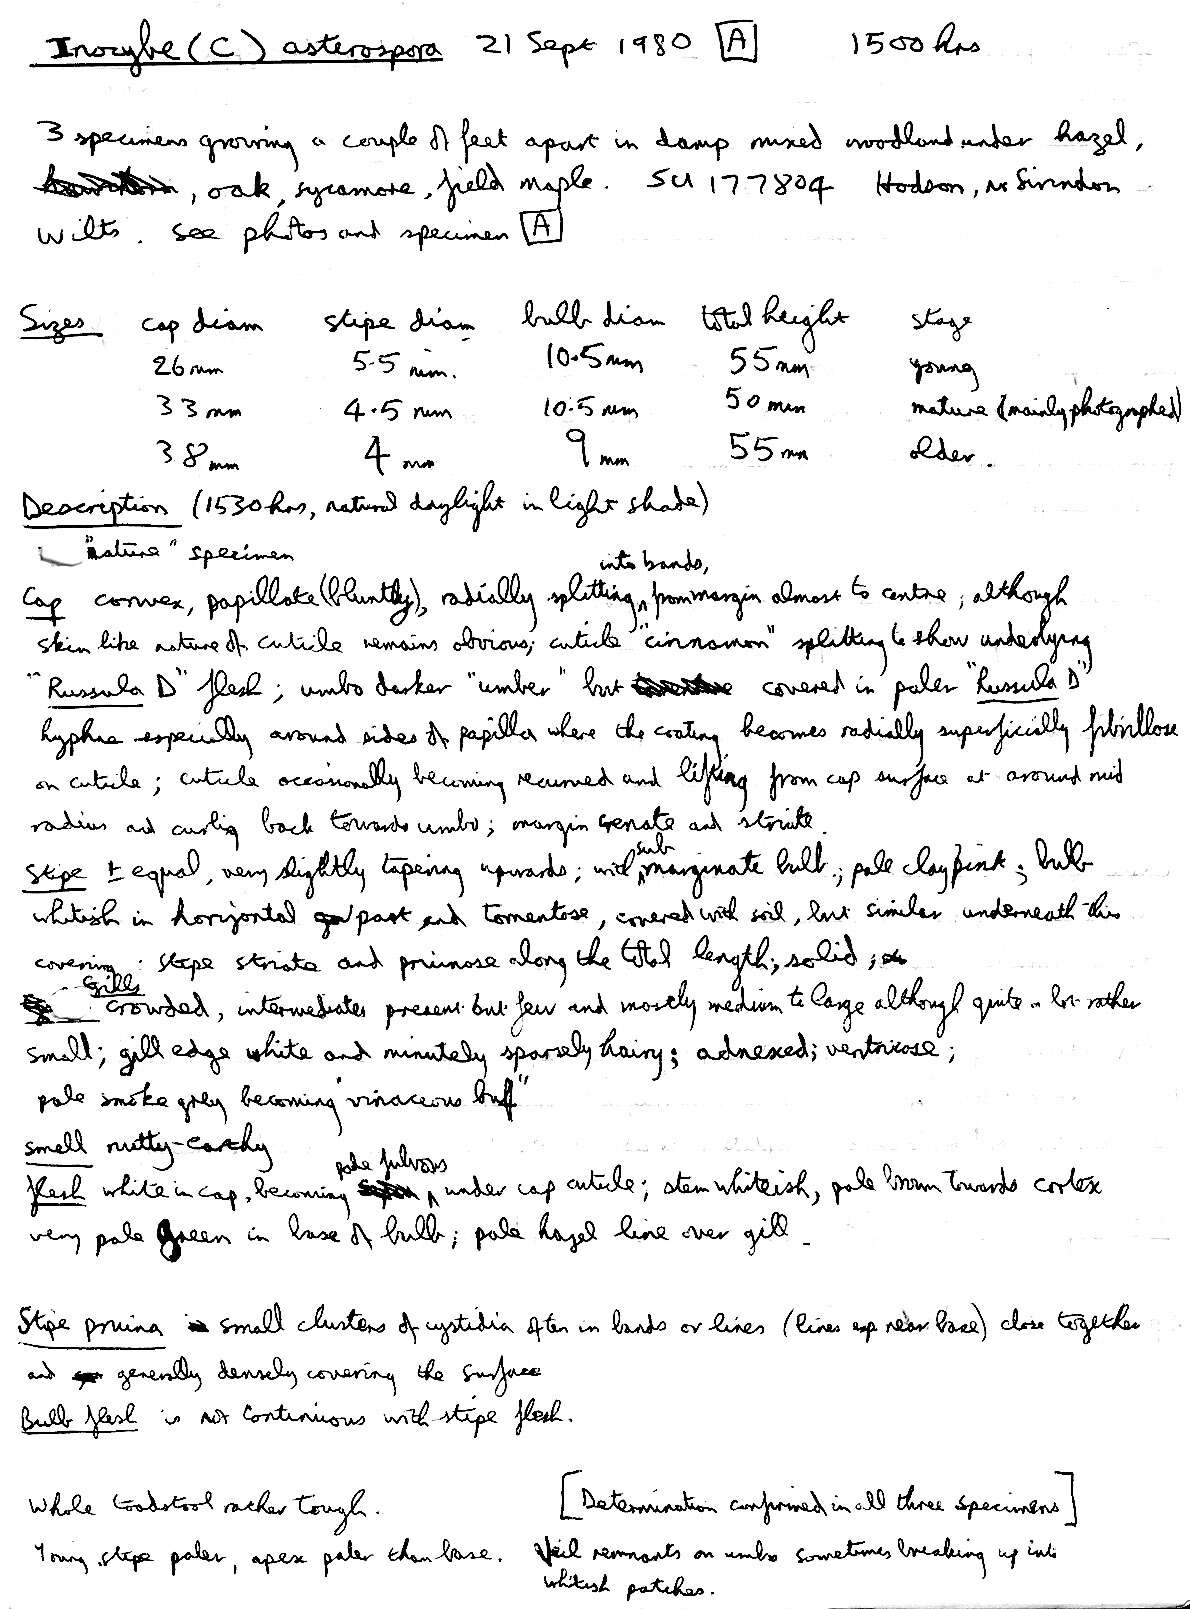 Inocybe (C) asterospora 21 Sept 1980 [A] 1500 hrs
3 specimens growing a couple of feet apart in damp mixed woodland under hazel,
, oak, sycamore, field maple. SU 177804 Hodson, nr Swindon
Wilts. See photos and specimen [A]
Sizes cap diam stipe diam bulb diam total height stage
26mm 5.5 mm. 10.5mm 55mm young
33mm 4.5 mm 10.5 mm 50 mm mature (mainly photographed)
38mm 4 mm 9mm 55mm older.
Description (1530 hrs, natural daylight in light shade)
"mature" specimen
into bands,
Cap convex, papillate (bluntly), radially splitting, from margin almost to centre; although
skin like nature of cuticle remains obvious; cuticle "cinnamon" splitting to show underlying
"Russula D" flesh; umbo darker "umber" but covered in paler "Russula D"
hyphae especially around sides of papilla where the coating becomes radially superficially fibrillose
on cuticle; cuticle occasionally becoming recurved and lifting from cap surface at around mid
radius and curlig back towards umbo; margin crenate and striate.
sub
Stipe ± equal, very slightly tapering upwards; with marginate bulb; pale clay pink; bulb
whitish in horizontal part and tomentose, covered with soil, but similar underneath this
covering: stipe striate and pruinose along the total length; solid;
Gills
crowded, intermediates present but few and mostly medium to large although quite a lot rather
small; gill edge white and minutely sparsely hairy; adnexed; ventricose;
pale smoke grey becoming "vinaceous buff"
Smell nutty-earthy
pale fulvous
flesh white in cap, becoming under cap cuticle; stem whiteish, pale brown towards cortex
very pale green in base of bulb; pale hazel line over gill.
Stipe pruina small clusters of cystidia often in bands or lines (lines esp near base) close together
and generally densely covering the surface
Bulb flesh is not continuous with stipe flesh.
Whole toadstool rather tough.
Young stipe paler, apex paler than base.
[Determination confirmed in all three specimens]
Veil remnants on umbo sometimes breaking up into
whitish patches.